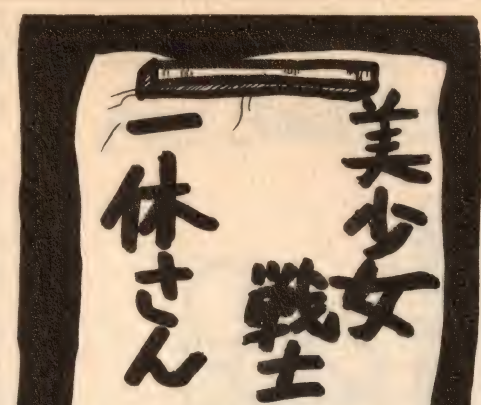 美少女
戦士
一休さん